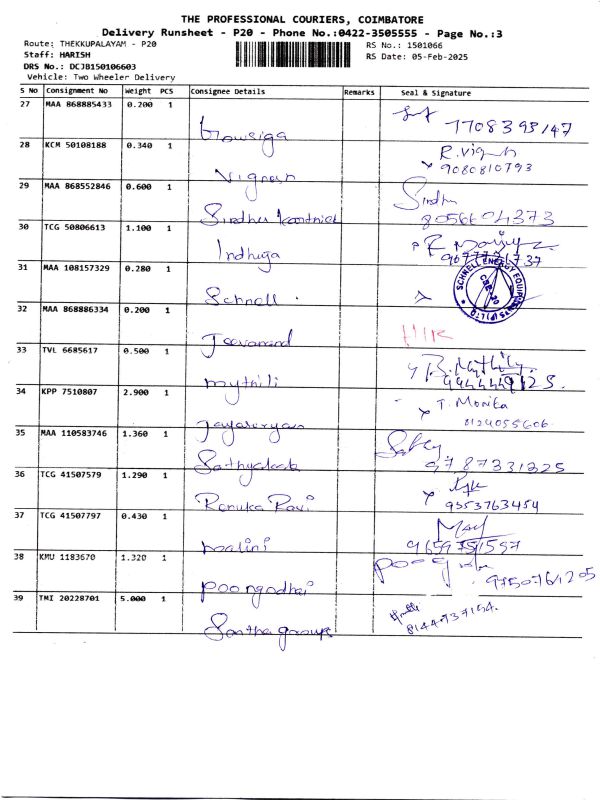 THE PROFESSIONAL COURIERS, COIMBATORE
Delivery Runsheet - P20 - Phone No.:0422-3505555 - Page No.:3
Route: THEKKUPALAYAM - P20 RS No.: 1501066
Staff: HARISH RS Date: 05-Feb-2025
DRS No.: DCJB150106603
Vehicle: Two Wheeler Delivery
S No Consignment No Weight PCS Consignee Details Remarks Seal & Signature
27 MAA 868885433 0.200 1
Growsiga 7708393147
28 KCM 50108188 0.340 1 R.Vignesh
Vignesh 9080810793
29 MAA 868552846 0.600 1 Sindhu
Sindhu Karthick 8056604373
30 TCG 50806613 1.100 1
Indhuja
31 MAA 108157329 0.280 1 SCHNELL ENERGY EQUIPMENTS (P) LTD
Schnell CBE-20
32 MAA 868886334 0.200 1
Jeevanand
33 TVL 6685617 0.500 1
mythili
34 KPP 7510807 2.900 1 T. Monika
8124055606
35 MAA 110583746 1.360 1
9787331325
36 TCG 41507579 1.290 1
Renuka Ravi 9553763454
37 TCG 41507797 0.430 1
38 KMU 1183670 1.320 1
Poongodhai
39 TMI 20228701 5.000 1
Santha groups